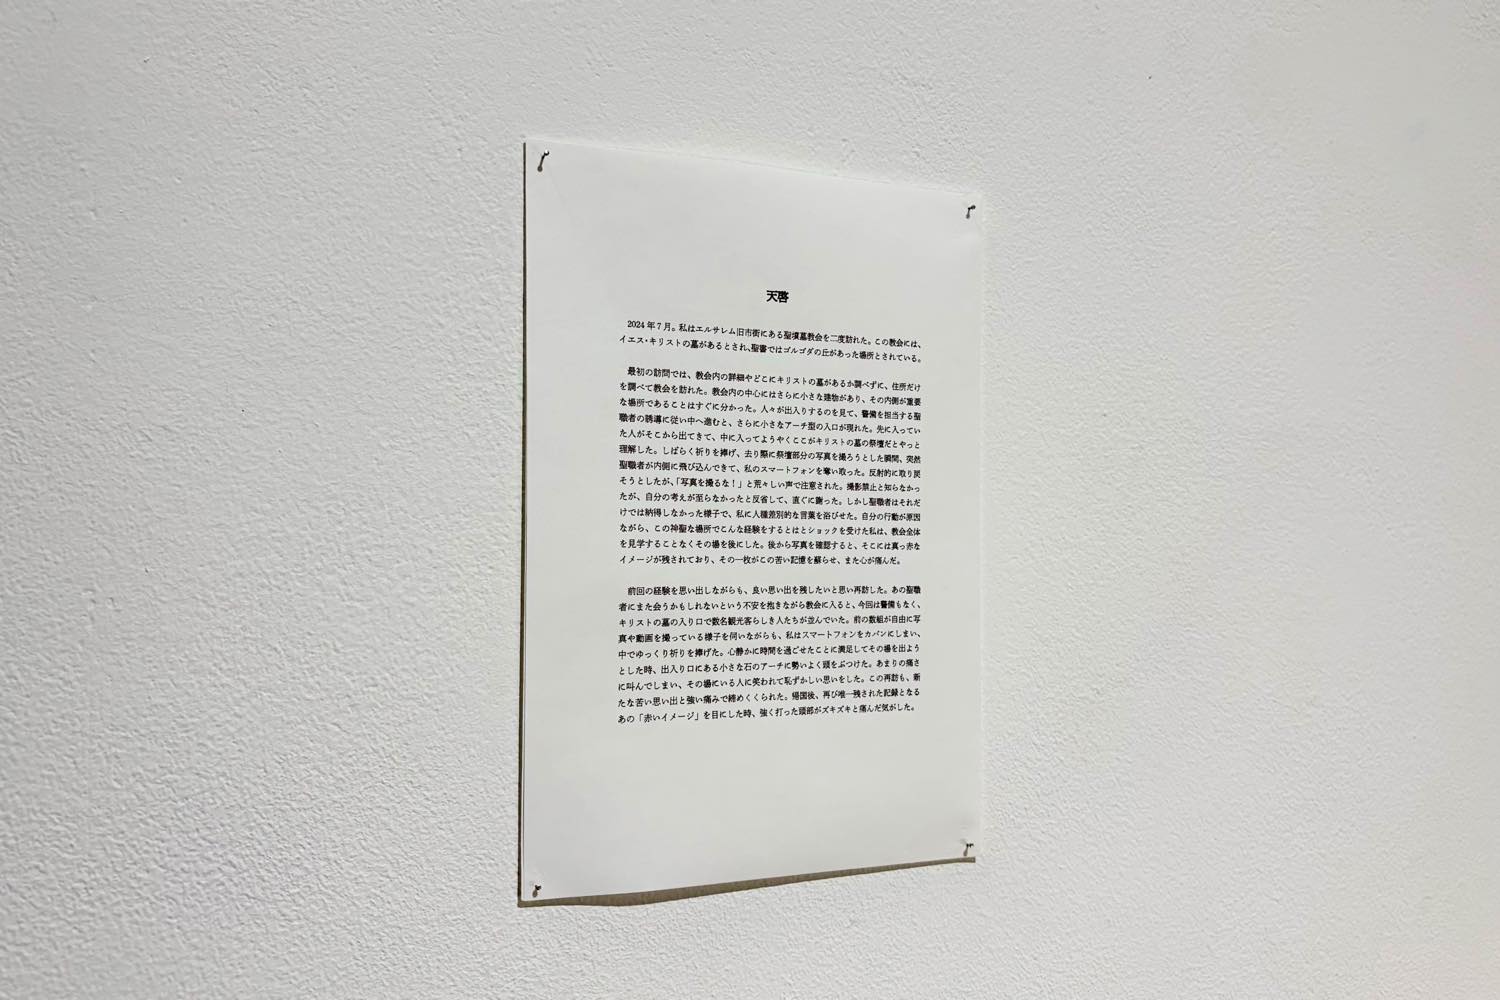 天啓
2024年7月。私はエルサレム旧市街にある聖墳墓教会を二度訪れた。この教会には、
イエス・キリストの墓があるとされ、聖書ではゴルゴダの丘があった場所とされている。
最初の訪問では、教会内の詳細やどこにキリストの墓があるか調べずに、住所だけ
を調べて教会を訪れた。教会内の中心にはさらに小さな建物があり、その内側が重要
な場所であることはすぐに分かった。人々が出入りするのを見て、警備を担当する聖
職者の誘導に従い中へ進むと、さらに小さなアーチ型の入口が現れた。先に入ってい
た人がそこから出てきて、中に入ってようやくここがキリストの墓の祭壇だとやっと
理解した。しばらく祈りを捧げ、去り際に祭壇部分の写真を撮ろうとした瞬間、突然
聖職者が内側に飛び込んできて、私のスマートフォンを奪い取った。反射的に取り戻
そうとしたが、「写真を撮るな！」と荒々しい声で注意された。撮影禁止と知らなかっ
たが、自分の考えが至らなかったと反省して、直ぐに謝った。しかし聖職者はそれだ
けでは納得しなかった様子で、私に人種差別的な言葉を浴びせた。自分の行動が原因
ながら、この神聖な場所でこんな経験をするとはとショックを受けた私は、教会全体
を見学することなくその場を後にした。後から写真を確認すると、そこには真っ赤な
イメージが残されており、その一枚がこの苦い記憶を蘇らせ、また心が痛んだ。
前回の経験を思い出しながらも、良い思い出を残したいと思い再訪した。あの聖職
者にまた会うかもしれないという不安を抱きながら教会に入ると、今回は警備もなく、
キリストの墓の入り口で数名観光客らしき人たちが並んでいた。前の数組が自由に写
真や動画を撮っている様子を伺いながらも、私はスマートフォンをカバンにしまい、
中でゆっくり祈りを捧げた。心静かに時間を過ごせたことに満足してその場を出よう
とした時、出入り口にある小さな石のアーチに勢いよく頭をぶつけた。あまりの痛さ
に叫んでしまい、その場にいる人に笑われて恥ずかしい思いをした。この再訪も、新
たな苦い思い出と強い痛みで締めくくられた。帰国後、再び唯一残された記録となる
あの「赤いイメージ」を目にした時、強く打った頭部がズキズキと痛んだ気がした。